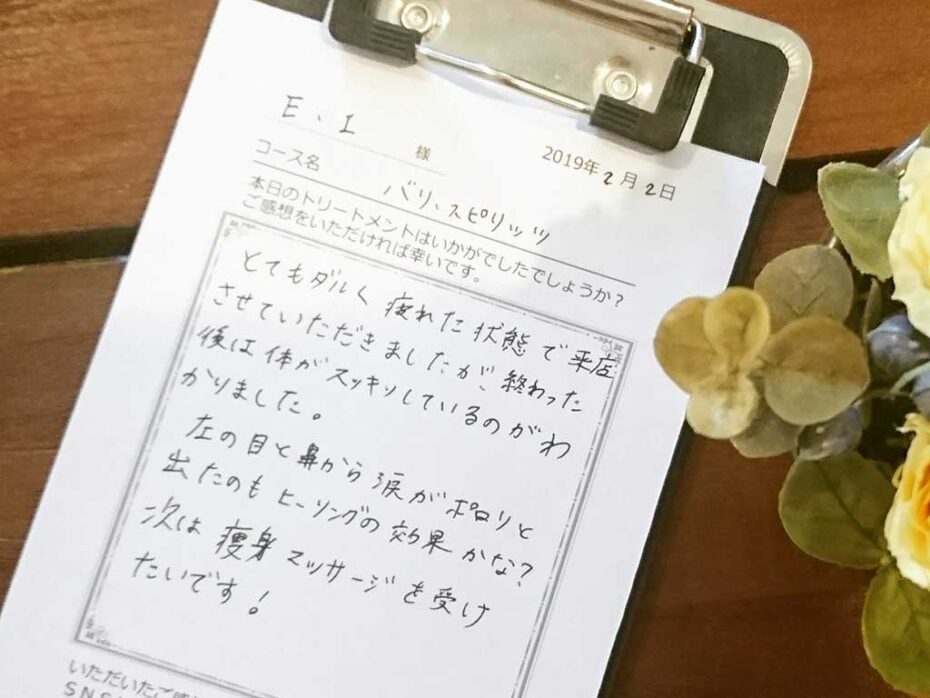 E、I 様
2019年2月2日
コース名
バリ、スピリッツ
本日のトリートメントはいかがでしたでしょうか？
ご感想をいただければ幸いです。
とてもダルく 疲れた 状態で来店
させていただきましたが、終わった
後は体がスッキリしているのがわ
かりました。
左の目と鼻から涙がポロリと
出たのもヒーリングの効果かな？
次は 痩身 マッサージを受け
たいです！
いただいたご感
SNS